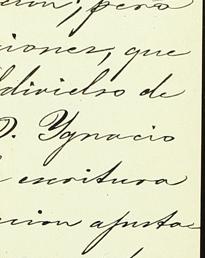 cion, pero
ciones, que
ldivielso de
D. Ygnacio
escritura
cion ajusta=